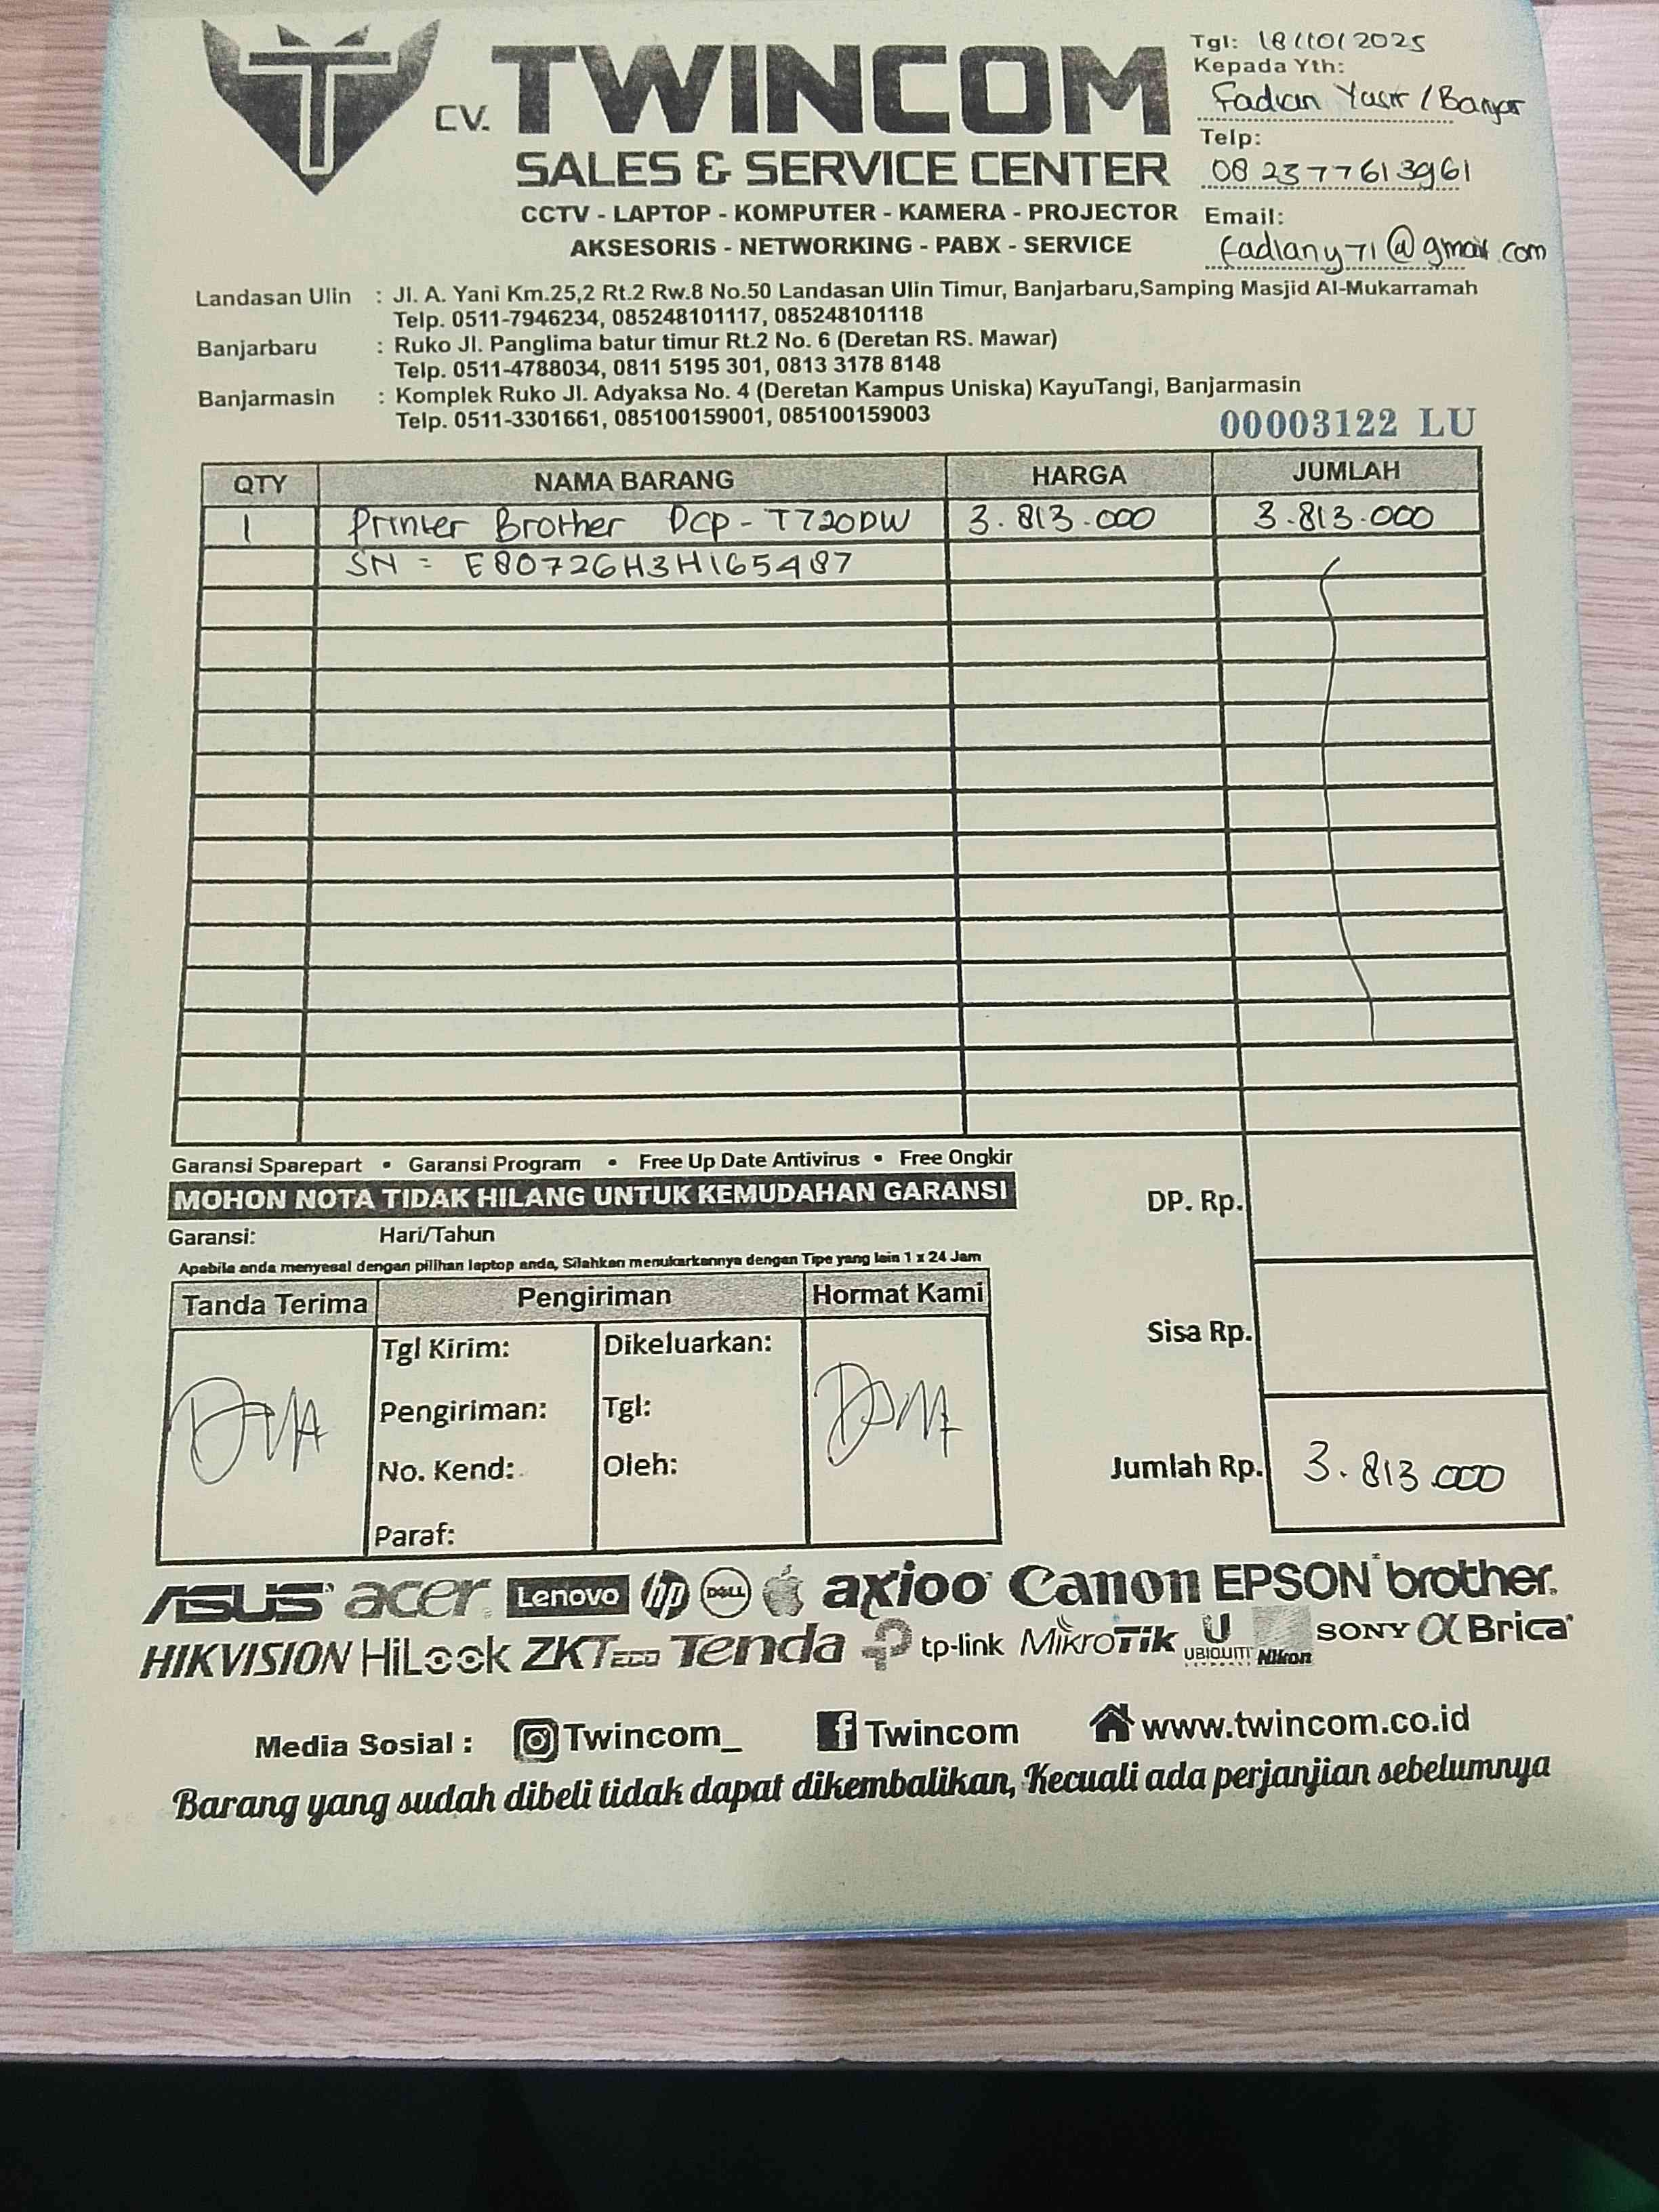 CV. TWINCOM
SALES & SERVICE CENTER
CCTV - LAPTOP - KOMPUTER - KAMERA - PROJECTOR
AKSESORIS - NETWORKING - PABX - SERVICE
Tgl: 18/10/2025
Kepada Yth:
Fadian Yasir / Banjar
Telp:
082377613961
Email:
fadiany71@gmail.com
Landasan Ulin : Jl. A. Yani Km.25,2 Rt.2 Rw.8 No.50 Landasan Ulin Timur, Banjarbaru,Samping Masjid Al-Mukarramah
Telp. 0511-7946234, 085248101117, 085248101118
Banjarbaru : Ruko Jl. Panglima batur timur Rt.2 No. 6 (Deretan RS. Mawar)
Telp. 0511-4788034, 0811 5195 301, 0813 3178 8148
Banjarmasin : Komplek Ruko Jl. Adyaksa No. 4 (Deretan Kampus Uniska) KayuTangi, Banjarmasin
Telp. 0511-3301661, 085100159001, 085100159003
00003122 LU
QTY NAMA BARANG HARGA JUMLAH
1 Printer Brother DCP-T720DW 3.813.000 3.813.000
SN = E80726H3H165487
Garansi Sparepart • Garansi Program • Free Up Date Antivirus • Free Ongkir
MOHON NOTA TIDAK HILANG UNTUK KEMUDAHAN GARANSI
Garansi: Hari/Tahun
Apabila anda menyesal dengan pilihan laptop anda, Silahkan menukarkannya dengan Tipe yang lain 1 x 24 Jam
DP. Rp.
Sisa Rp.
Jumlah Rp. 3.813.000
Tanda Terima Pengiriman Hormat Kami
Tgl Kirim: Dikeluarkan:
Pengiriman: Tgl:
No. Kend: Oleh:
Paraf:
ASUS acer Lenovo hp DELL axioo Canon EPSON brother
HIKVISION HiLook ZKTECO Tenda tp-link MikroTik U UBIQUITI Nikon SONY α Brica
Media Sosial : Twincom_ Twincom www.twincom.co.id
Barang yang sudah dibeli tidak dapat dikembalikan, Kecuali ada perjanjian sebelumnya